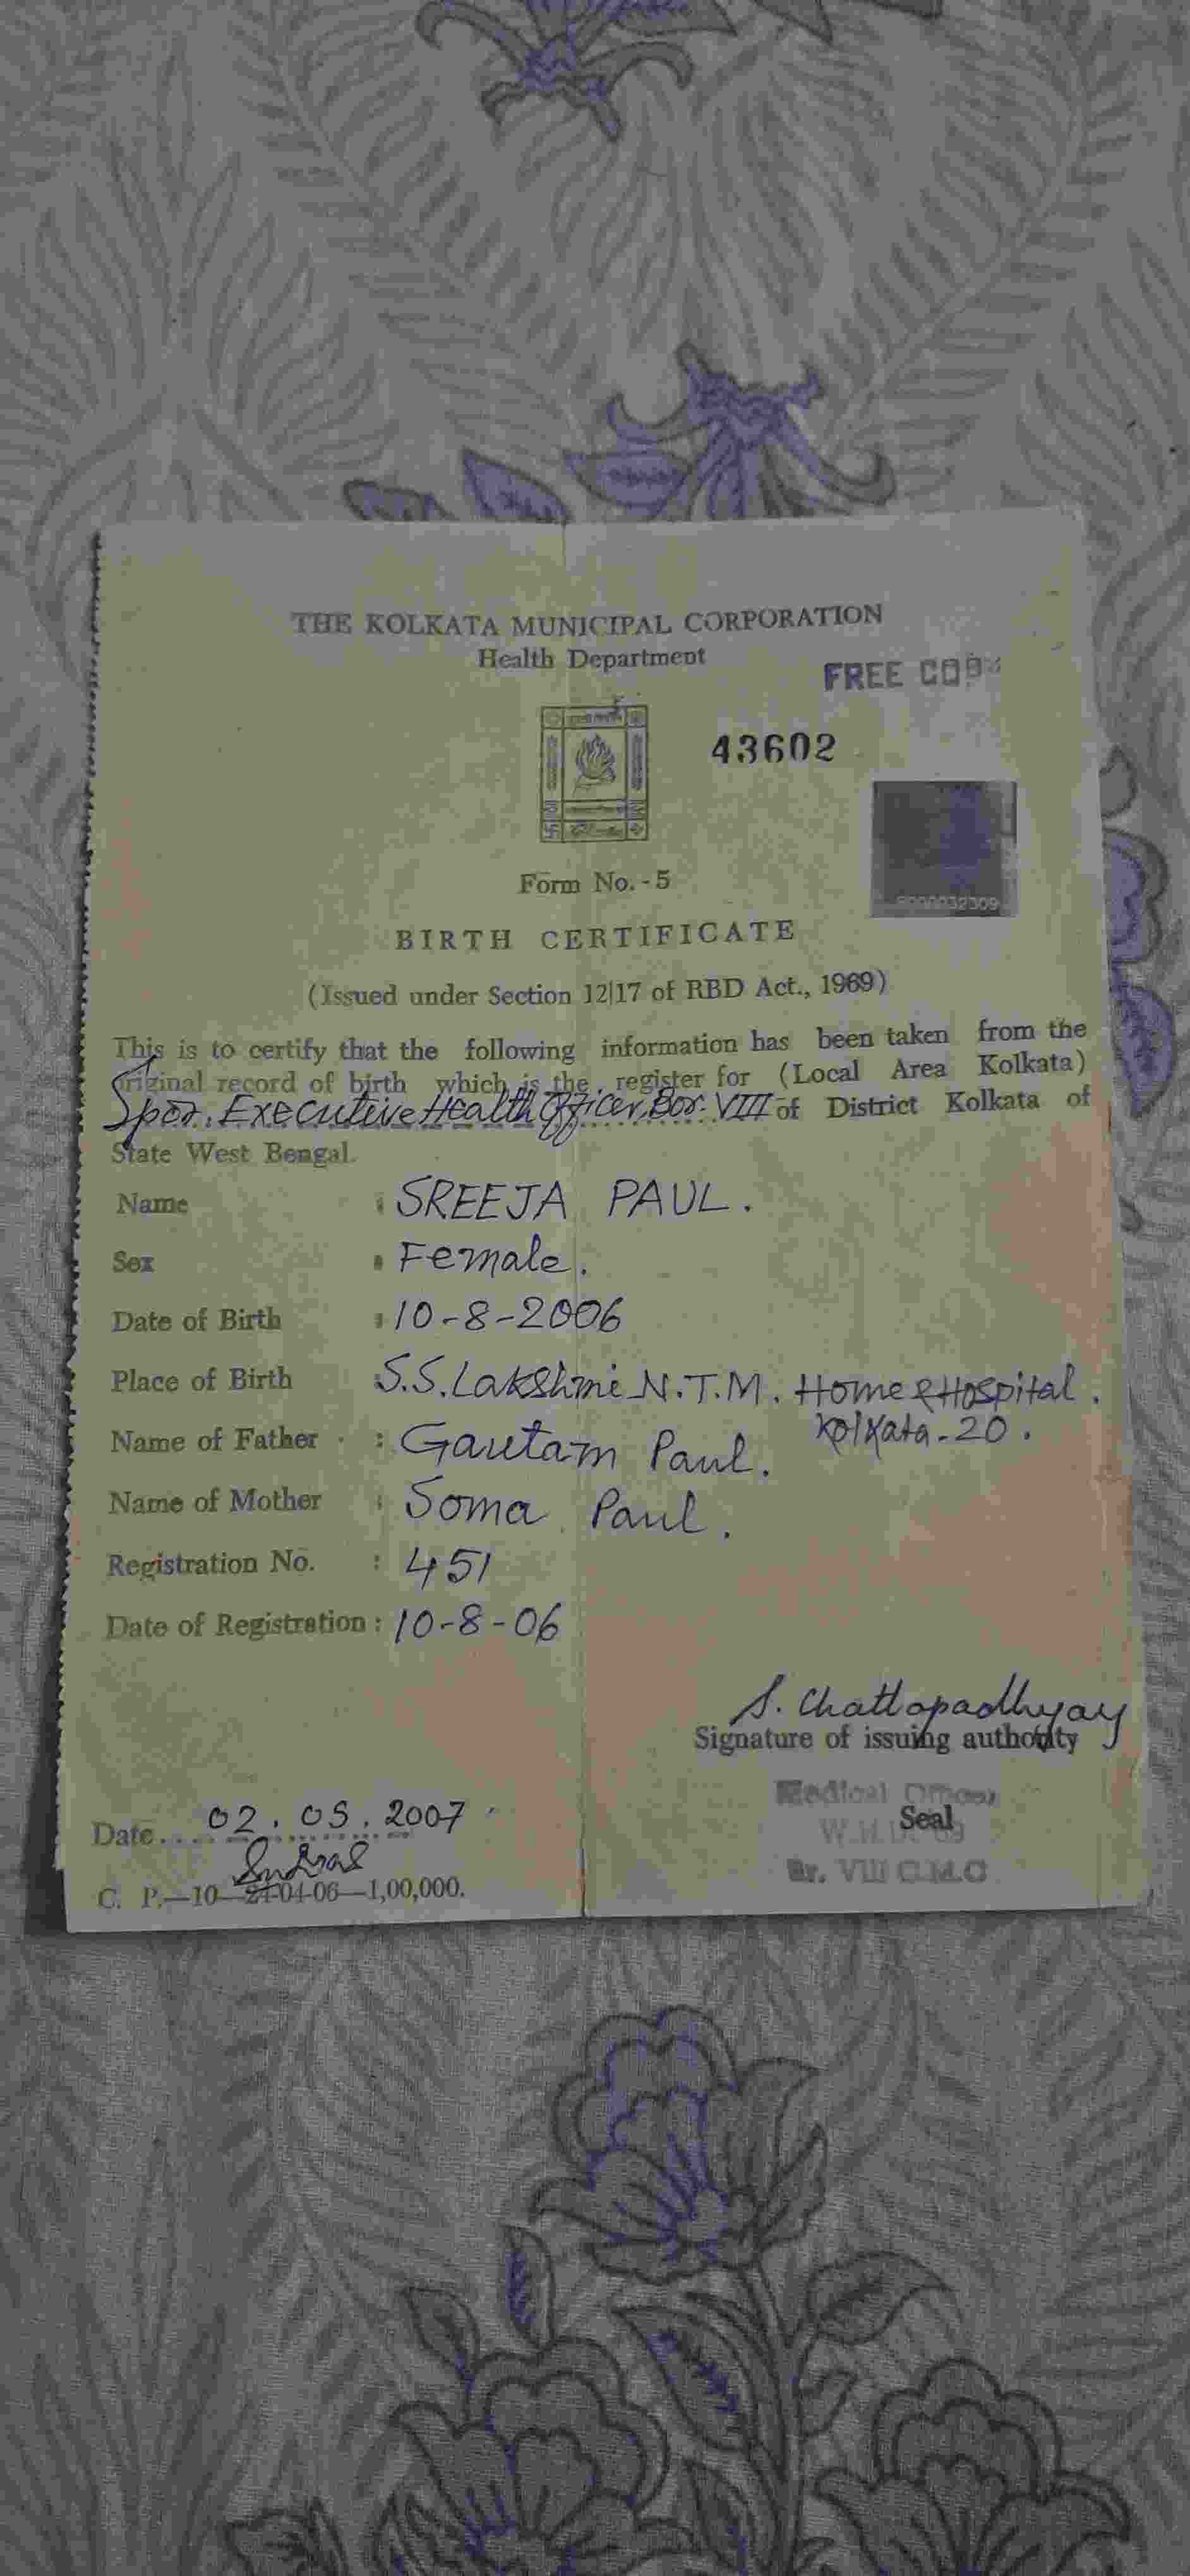 THE KOLKATA MUNICIPAL CORPORATION
Health Department
FREE COPY
43602
Form No. - 5
BIRTH CERTIFICATE
(Issued under Section 12|17 of RBD Act., 1969)
This is to certify that the following information has been taken from the
original record of birth which is the register for (Local Area Kolkata)
Executive Health Officer, Bor. VIII of District Kolkata of
State West Bengal.
Name : SREEJA PAUL.
Sex : Female.
Date of Birth : 10-8-2006
Place of Birth : S.S. Lakshmi N.T.M. Home & Hospital.
Kolkata-20.
Name of Father : Gautam Paul.
Name of Mother : Soma Paul.
Registration No. : 451
Date of Registration : 10-8-06
S. Chattopadhyay
Signature of issuing authority
Medical Officer
Seal
Br. VIII C.M.C
Date.... 02.05.2007
C. P.—10—21-04-06—1,00,000.